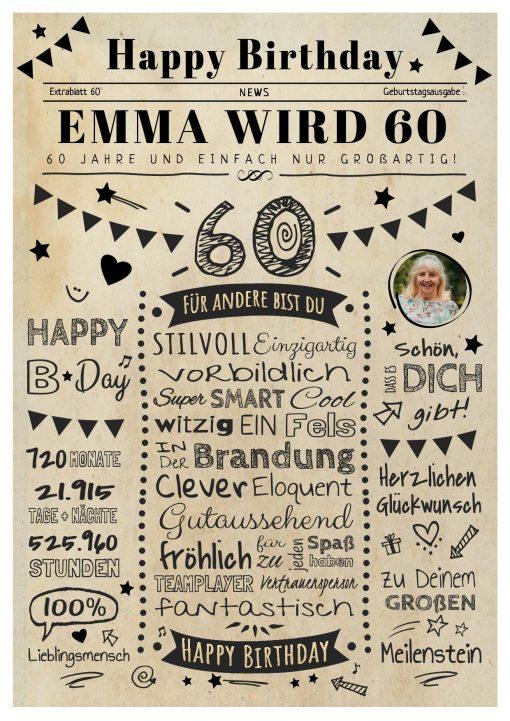 Happy Birthday
Extrablatt 60
NEWS
Geburtstagsausgabe
EMMA WIRD 60
60 JAHRE UND EINFACH NUR GROßARTIG!
60
FÜR ANDERE BIST DU
STILVOLL Einzigartig
vorbildlich
Super SMART Cool
witzig EIN Fels
IN Der Brandung
Clever Eloquent
Gutaussehend
fröhlich für zu jeden Spaß haben
TEAMPLAYER Vertrauensperson
fantastisch
HAPPY BIRTHDAY
HAPPY
B Day
720 MONATE
21.915
TAGE + NÄCHTE
525.960
STUNDEN
100%
Lieblingsmensch
Schön,
DASS ES DICH
gibt!
Herzlichen
Glückwunsch
zu Deinem
GROßEN
Meilenstein